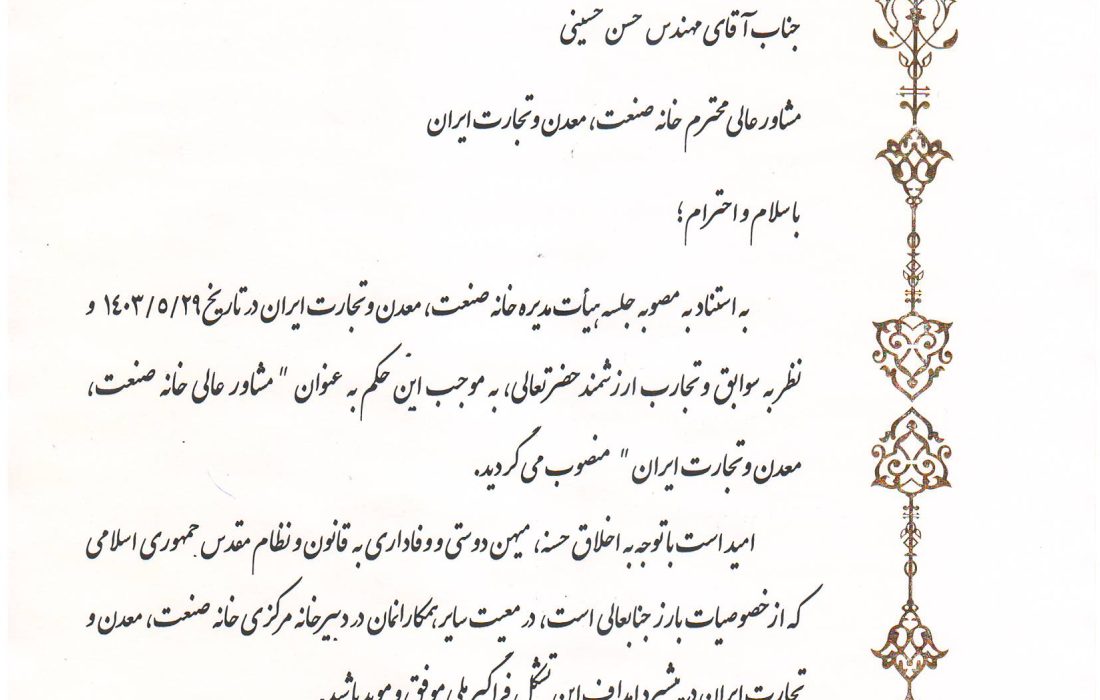 جناب آقای مهندس حسن حسینی
مشاور عالی محترم خانه صنعت، معدن و تجارت ایران
با سلام و احترام؛
به استناد به مصوبه جلسه هیأت مدیره خانه صنعت، معدن و تجارت ایران در تاریخ ۱۴۰۳/۵/۲۹ و
نظر به سوابق و تجارب ارزشمند حضرتعالی، به موجب این حکم به عنوان "مشاور عالی خانه صنعت،
معدن و تجارت ایران" منصوب می گردید.
امید است با توجه به اخلاق حسنه، میهن دوستی و وفاداری به قانون و نظام مقدس جمهوری اسلامی
که از خصوصیات بارز جنابعالی است، در معیت سایر همکارانمان در دبیرخانه مرکزی خانه صنعت، معدن و
تجارت ایران در پیشبرد اهداف این تشکل فراگیر ملی موفق و موید باشید.